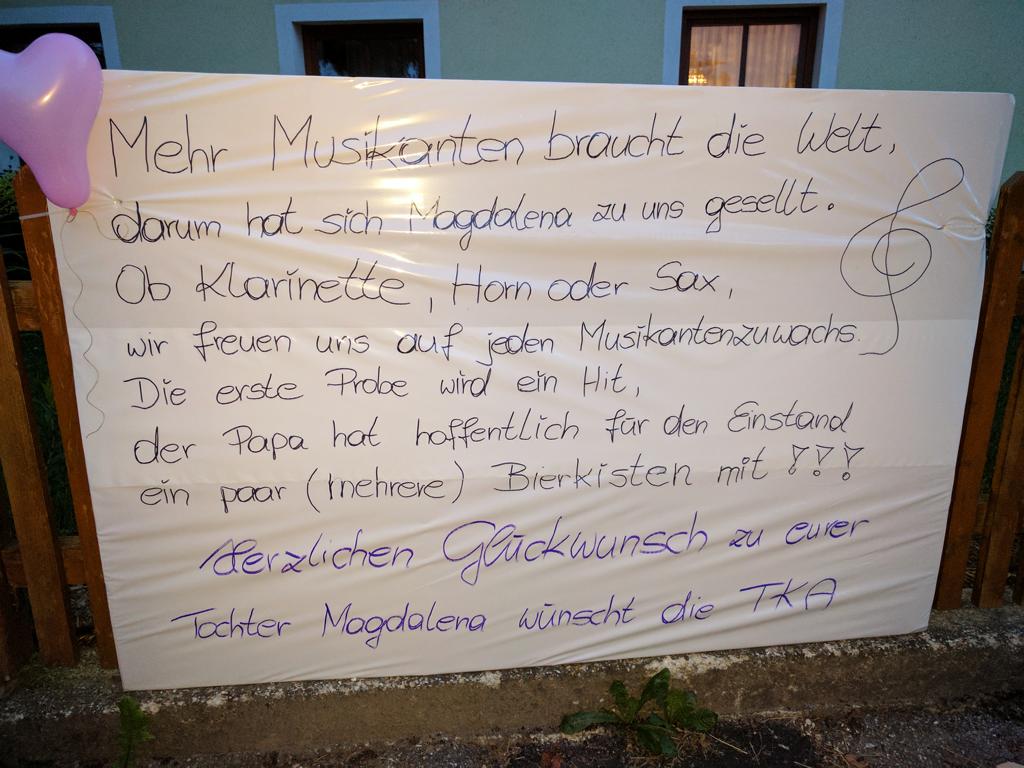 Mehr Musikanten braucht die Welt,
darum hat sich Magdalena zu uns gesellt.
Ob Klarinette, Horn oder Sax,
wir freuen uns auf jeden Musikantenzuwachs.
Die erste Probe wird ein Hit,
der Papa hat hoffentlich für den Einstand
ein paar (mehrere) Bierkisten mit !!!
Herzlichen Glückwunsch zu eurer
Tochter Magdalena wünscht die TKA